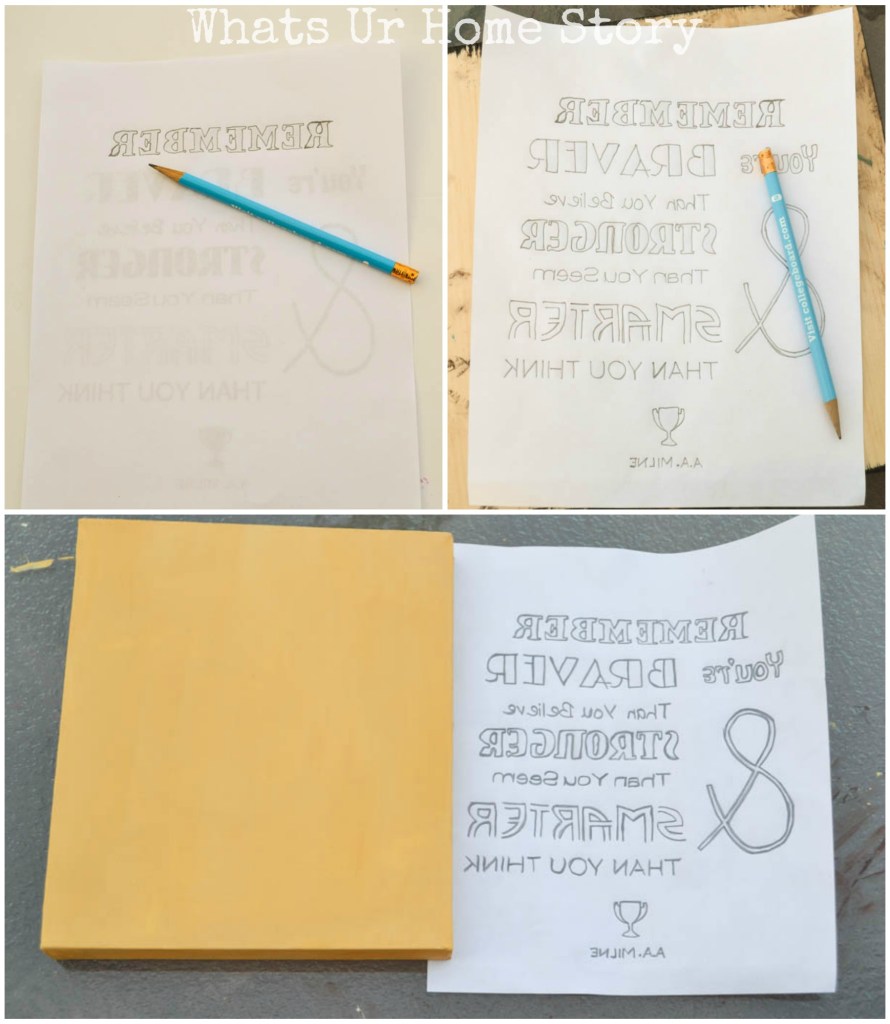 Whats Ur Home Story
REMEMBER
You're BRAVER
Than You Believe
STRONGER
Than You Seem
&
SMARTER
THAN YOU THINK
A.A. MILNE
REMEMBER
You're BRAVER
Than You Believe
STRONGER
Than You Seem
&
SMARTER
THAN YOU THINK
A.A. MILNE
Visit collegeboard.com
REMEMBER
You're BRAVER
Than You Believe
STRONGER
Than You Seem
&
SMARTER
THAN YOU THINK
A.A. MILNE